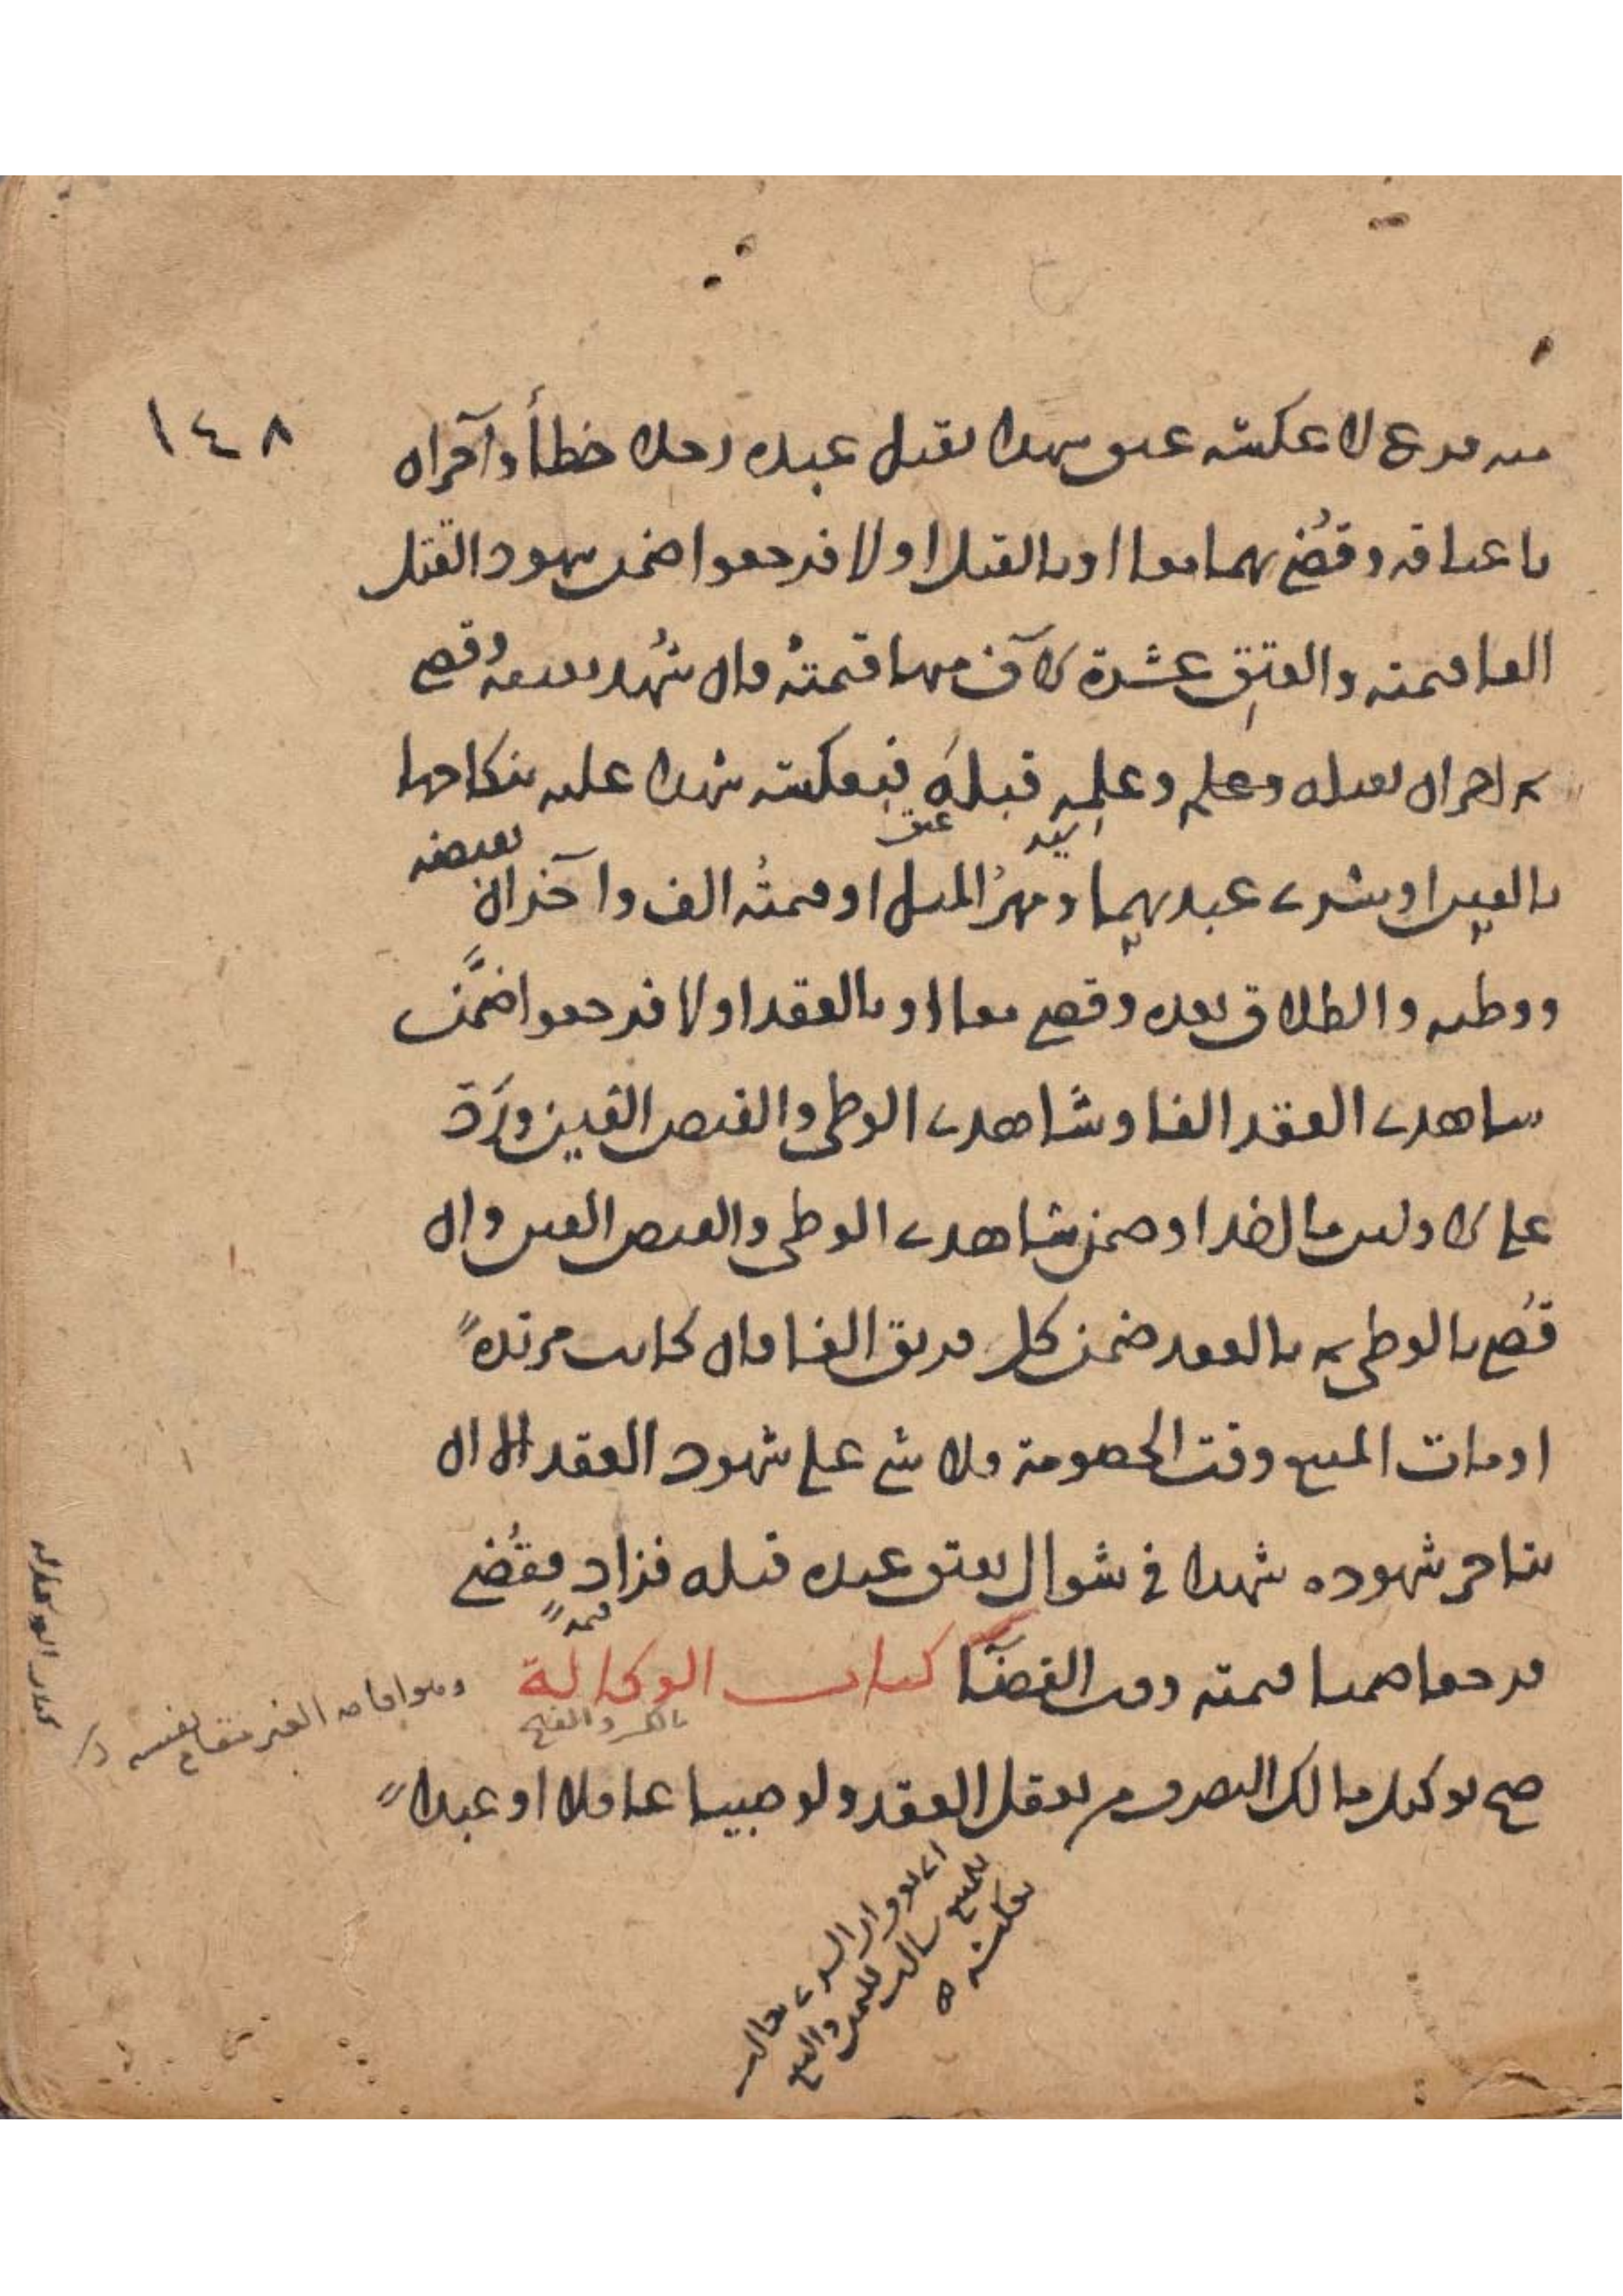 ١٤٨
منه فرع لا عكسه عبد شهدا بقتل عبده رجلا خطأ وآخران
باعتاقه وقُضي بهما معا او بالقتل اولا فرجعوا ضمن شهود القتل
الفا قيمته والعتق عشرة الاف منها قيمتهُ وان شهد بعدهُ وقضي
ثم اخران بقتله وعلم وعلمِه قبلهَ فبعكسه شهدا عليه بنكاحها
السيد
عتق
بالفين او بشرى عبد بهما ومهرُ المثل او قيمتُه الف وآخران
بقبضه
ووطيه والطلاق بعده وقضي معا او بالعقد اولا فرجعوا ضمَّن
شاهدى العقد الفا وشاهدى الوطى والقبض الفين ورَدّ
على الاولين ما اخذا وضمن شاهدى الوطى والقبض الفين وان
قُضي بالوطى ثم بالعقد ضمن كل فريق الفا وان كانت مرتدةً
او مات المبيع وقت الخصومة فلا شي على شهود العقد الا ان
يتاخر شهوده شهدا في شوال بعتق عبده قبله فزاد فقُضي
قيمةً
فرجعا ضمنا قيمته وقت القضآ كتاب الوكالة
بالكسر والفتح
وهو اقامه الغير مقام نفسه
كتاب الوكاله
صح توكيل مالك التصرف من يعقل العقد ولو صبيا عاقلا او عبداً